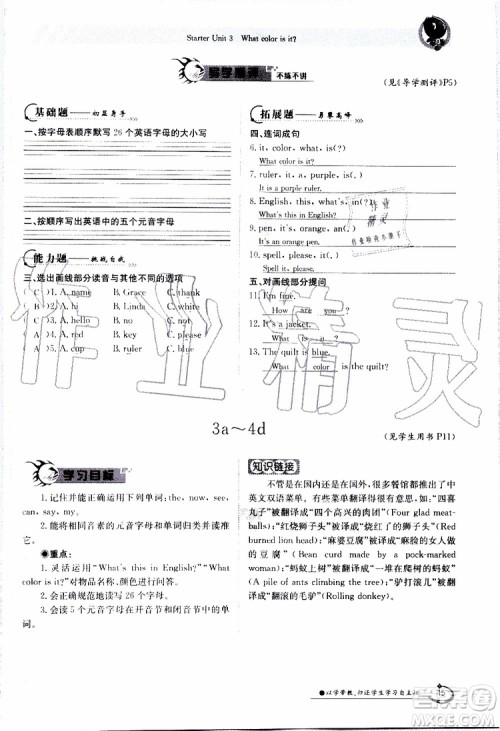 Starter Unit 3 What color is it?
易学测评 不练不讲
(见《导学测评》P5)
基础题 初显身手
一、按字母表顺序默写 26 个英语字母的大小写
二、按顺序写出英语中的五个元音字母
能力题 挑战自我
三、选出画线部分读音与其他不同的选项
( C )1. A. name B. Grace C. thank
2. A. hi B. Linda C. white
3. A. hello B. no C. not
4. A. red B. key C. he
5. A. cup B. ruler C. blue
拓展题 勇攀高峰
四、连词成句
6. it, color, what, is(?)
What color is it?
7. ruler, it, a, purple, is(.)
It is a purple ruler.
8. English, this, what, is, in(?)
What's this in English?
9. pen, it, orange, is, an(.)
It's an orange pen.
10. spell, please, it(.)
Spell it, please.
五、对画线部分提问
11. I'm fine.
12. It's a jacket.
13. The quilt is blue.
作业精灵
3a～4d
(见学生用书 P11)
学习目标
1. 记住并能正确运用下列单词:the, now, see, can, say, my.
2. 能将相同音素的元音字母和单词归类到一起。
●重点:
1. 灵活运用"What's this in English?""What color is it?"对物品名称、颜色进行提问。
2. 会正确规范地书写本课重点单词及句型。
3. 会读 5 个元音字母在开音节和闭音节中的发音。
知识链接
不管是在国内还是在国外,很多餐馆都推出了中英文双语菜单。在有些菜单的英文译文中,如"四喜丸子"被翻译成"四个高兴的肉团"(Four glad meatballs);"红烧狮子头"被译成"烧红了的狮子头"(Red burned lion head);"麻婆豆腐"被译成"麻脸的女人做的豆腐"(Bean curd made by a pock-marked woman);"蚂蚁上树"被译成"一堆在爬树的蚂蚁"(A pile of ants climbing the tree);"驴打滚儿"被翻译成"翻滚的毛驴"(Rolling donkey).
●以学带教,归还学生学习自主权
15